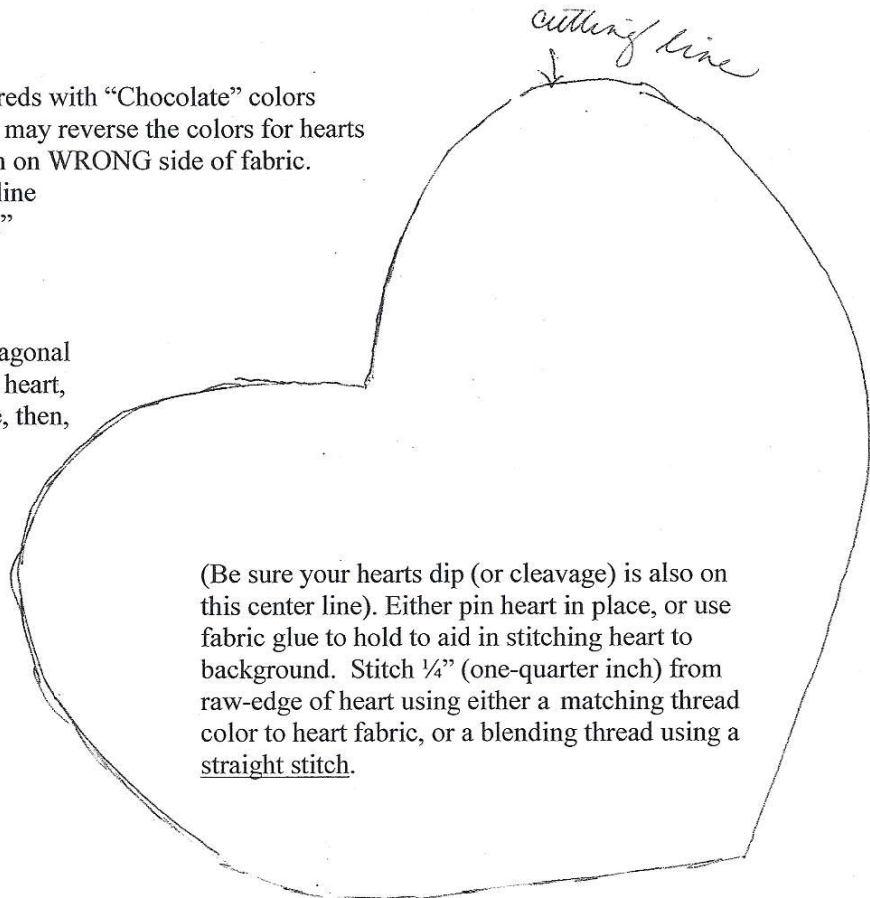 cutting line
reds with “Chocolate” colors
may reverse the colors for hearts
on WRONG side of fabric.
line
”
agonal
heart,
, then,
(Be sure your hearts dip (or cleavage) is also on
this center line). Either pin heart in place, or use
fabric glue to hold to aid in stitching heart to
background.  Stitch ¼” (one-quarter inch) from
raw-edge of heart using either a matching thread
color to heart fabric, or a blending thread using a
straight stitch.